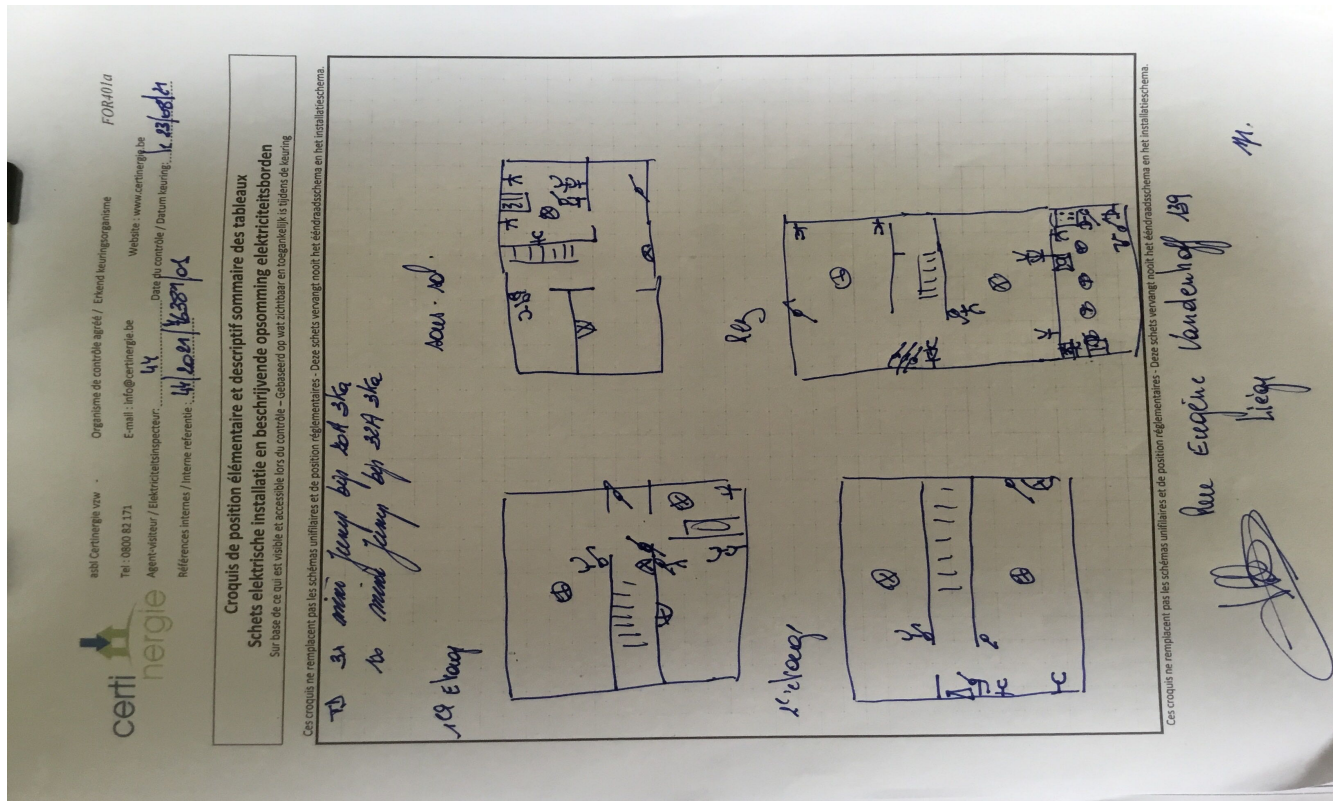 certi
nergie
asbl Certinergie vzw - Organisme de contrôle agréé / Erkend keuringsorganisme FOR401a
Tel : 0800 82 171 E-mail : info@certinergie.be Website : www.certinergie.be
Agent-visiteur / Elektriciteitsinspecteur: 44 Date du contrôle / Datum keuring: 23/08/21
Références internes / Interne referentie : 44/2021/
Croquis de position élémentaire et descriptif sommaire des tableaux
Schets elektrische installatie en beschrijvende opsomming elektriciteitsborden
Sur base de ce qui est visible et accessible lors du contrôle – Gebaseerd op wat zichtbaar en toegankelijk is tijdens de keuring
Ces croquis ne remplacent pas les schémas unifilaires et de position réglementaires - Deze schets vervangt nooit het ééndraadsschema en het installatieschema.
TD 3x mini bip 20A 3ka
10 mini bip 32A 3ka
sous-sol.
Ces croquis ne remplacent pas les schémas unifilaires et de position réglementaires - Deze schets vervangt nooit het ééndraadsschema en het installatieschema.
Rue Eugène Vandenhoff 139
Liège